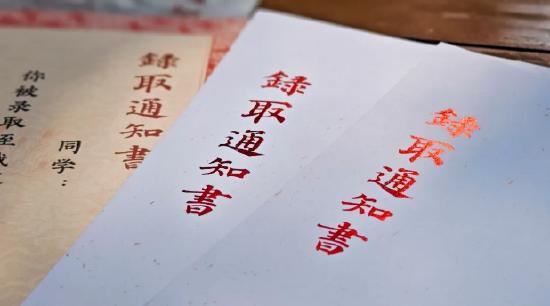 録取通知書
同学：
你被录取至
録取通知書
録取通知書